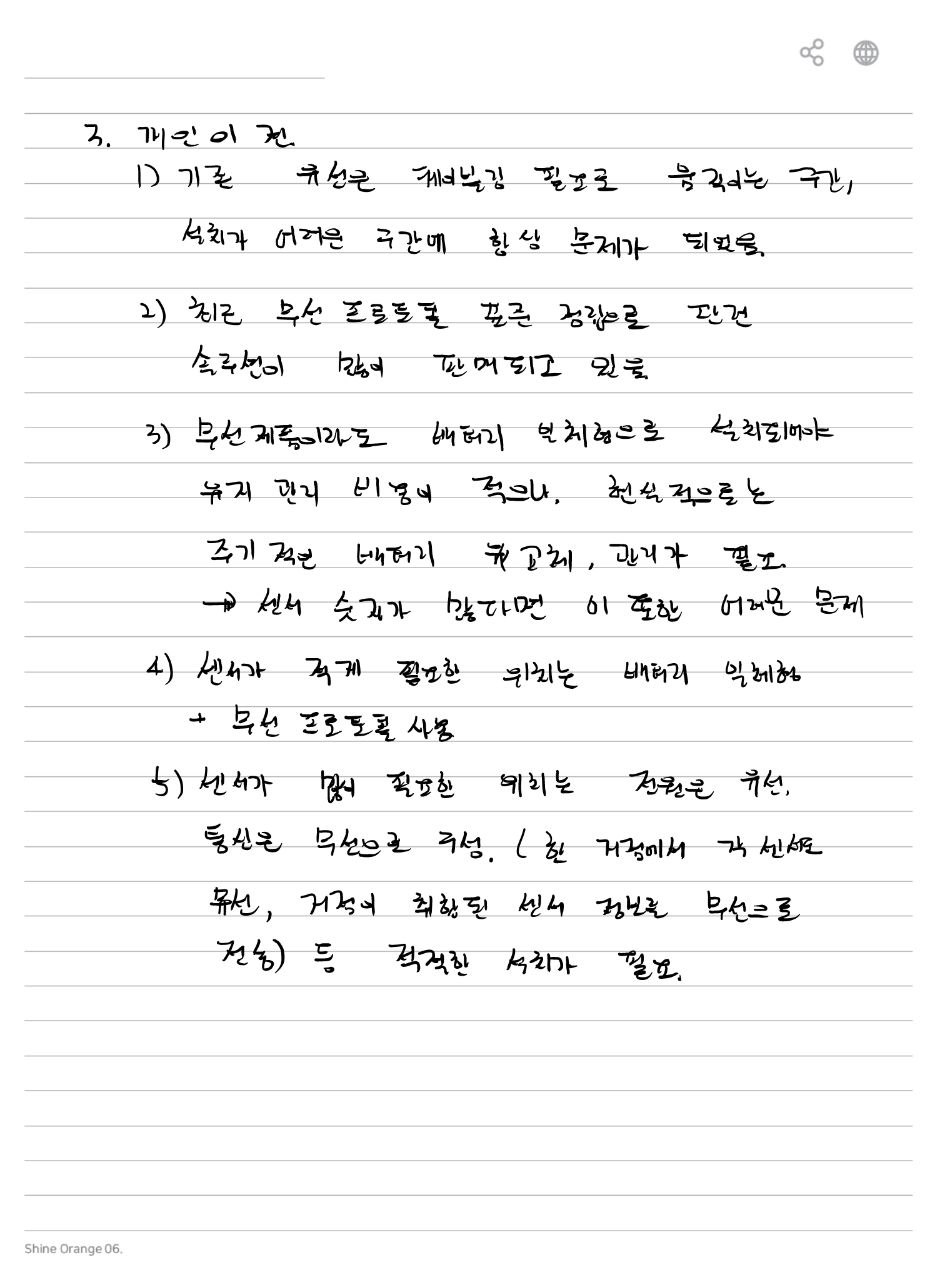 3. 개인 의견
1) 기존 유선은 케이블링 필요로 움직이는 구간,
설치가 어려운 구간에 항상 문제가 되었음.
2) 최근 무선 프로토콜 표준 정립으로
많이 판매되고 있음
3) 무선제품이라도 배터리 일체형으로 설치되어야
유지 관리 비용이 적으나, 현실적으로는
주기적인 배터리 교체, 관리가 필요.
→ 센서 숫자가 많다면 이 또한 어려운 문제
4) 센서가 적게 필요한 위치는 배터리 일체형
+ 무선 프로토콜 사용
5) 센서가 많이 필요한 위치는 전원은 유선,
통신은 무선으로 구성. (한 거점에서 각 센서로
유선, 거점이 취합된 센서 정보를 무선으로
전송) 등 적절한 설치가 필요.
Shine Orange 06.